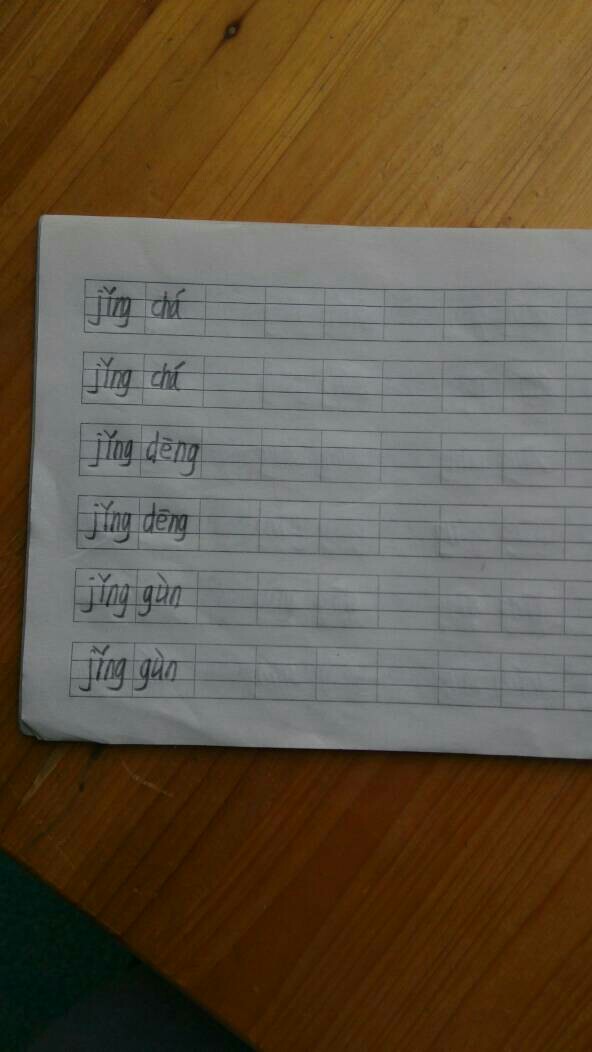 jǐng chá
jǐng chá
jǐng dēng
jǐng dēng
jǐng gùn
jǐng gùn